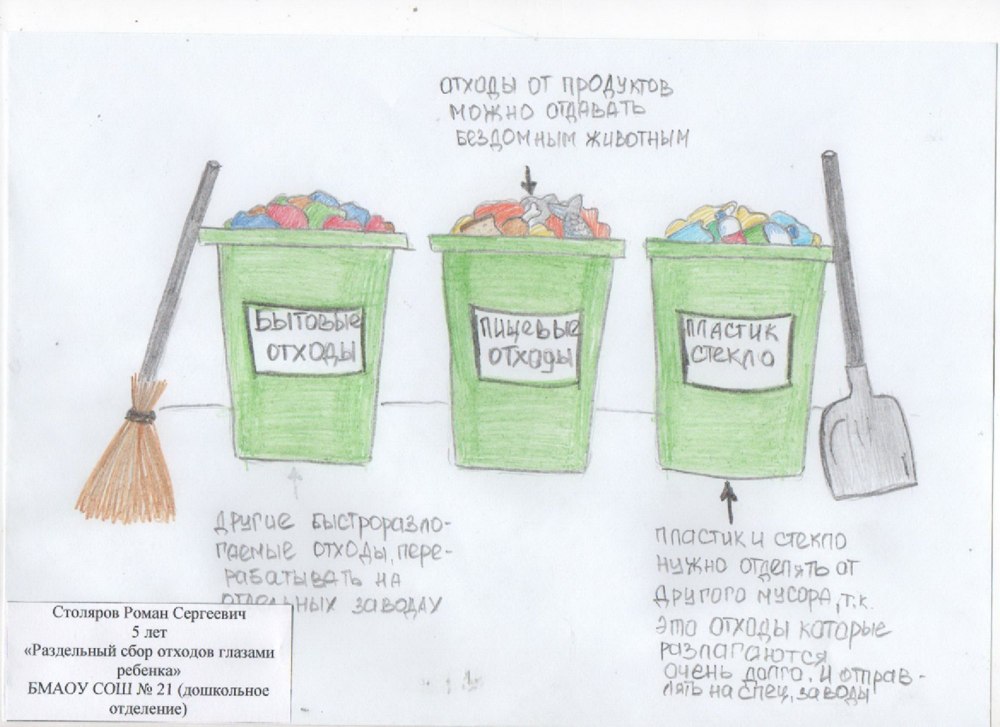 ОТХОДЫ ОТ ПРОДУКТОВ
МОЖНО ОТДАВАТЬ
БЕЗДОМНЫМ ЖИВОТНЫМ
БЫТОВЫЕ
ОТХОДЫ
ПИЩЕВЫЕ
ОТХОДЫ
ПЛАСТИК
СТЕКЛО
ДРУГИЕ БЫСТРОРАЗЛО-
ГАЕМЫЕ ОТХОДЫ, ПЕРЕ-
РАБАТЫВАТЬ НА
ОТДЕЛЬНЫХ ЗАВОДАХ
ПЛАСТИК И СТЕКЛО
НУЖНО ОТДЕЛЯТЬ ОТ
ДРУГОГО МУСОРА, Т.К.
ЭТО ОТХОДЫ КОТОРЫЕ
РАЗЛАГАЮТСЯ
ОЧЕНЬ ДОЛГО. И ОТПРАВ-
ЛЯТЬ НА СПЕЦ. ЗАВОДЫ
Столяров Роман Сергеевич
5 лет
«Раздельный сбор отходов глазами
ребенка»
БМАОУ СОШ № 21 (дошкольное
отделение)